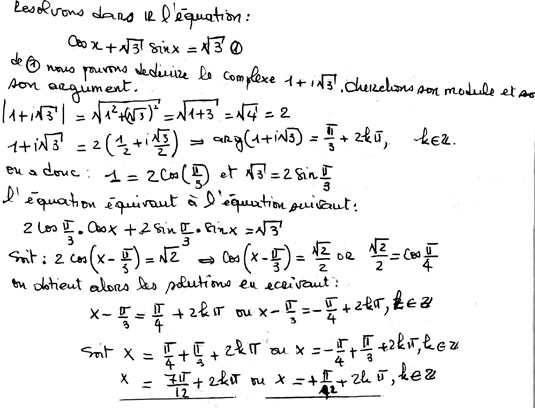 Resolvons dans IR l'équation :
Cos x + √3 sin x = √3 ①
de ① nous pouvons deduire le complexe 1 + i√3. cherchons son module et so
son argument.
|1 + i√3| = √(1² + (√3)²) = √(1+3) = √4 = 2
1 + i√3 = 2(1/2 + i√3/2) ⇒ arg(1 + i√3) = π/3 + 2kπ, k ∈ ℤ.
on a donc : 1 = 2 cos(π/3) et √3 = 2 sin π/3
l'équation équivaut à l'équation suivant :
2 cos π/3 . cos x + 2 sin π/3 . sin x = √3
Soit : 2 cos(x - π/3) = √2 ⇔ cos(x - π/3) = √2/2 or √2/2 = cos π/4
on obtient alors les solutions en ecrivant :
x - π/3 = π/4 + 2kπ ou x - π/3 = -π/4 + 2kπ, k ∈ ℤ
Soit x = π/4 + π/3 + 2kπ ou x = -π/4 + π/3 + 2kπ, k ∈ ℤ
x = 7π/12 + 2kπ ou x = +π/12 + 2kπ, k ∈ ℤ